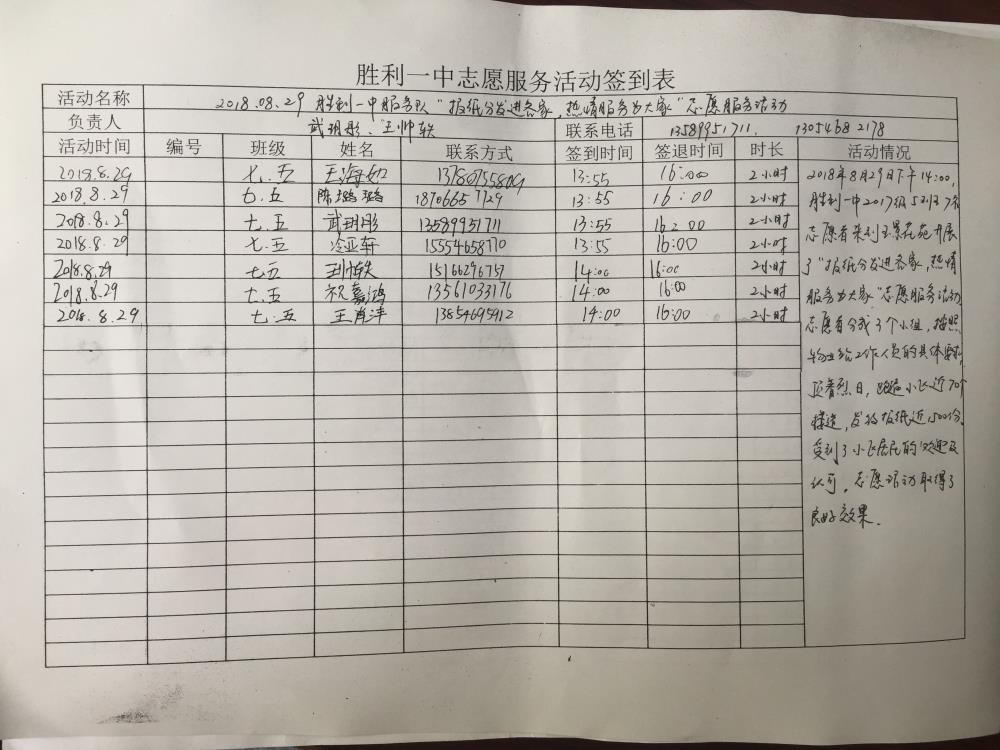 胜利一中志愿服务活动签到表
活动名称 2018.08.29 胜利一中服务队"报纸分发进各家,热情服务为大家"志愿服务活动
负责人 武玥彤、王帅轶 联系电话 13589951711. 13054682178
活动时间 编号 班级 姓名 联系方式 签到时间 签退时间 时长 活动情况
2018.8.29 七.五 王海如 13780755809 13:55 16:00 2小时
2018.8.29 七.五 陈璐璐 18706657729 13:55 16:00 2小时
2018.8.29 七.五 武玥彤 13589951711 13:55 16:00 2小时
2018.8.29 七.五 冷亚轩 15554658770 13:55 16:00 2小时
2018.8.29 七五 王帅轶 15166296757 14:00 16:00 2小时
2018.8.29 七.五 祝嘉鸿 13561033176 14:00 16:00 2小时
2018.8.29 七.五 王肖洋 13854695912 14:00 16:00 2小时
2018年8月29日下午14:00,
胜利一中2017级5班7名
志愿者来到玉景花苑开展
了"报纸分发进各家,热情
服务为大家"志愿服务活动
志愿者分成3个小组,按照
物业给工作人员的具体要求,
顶着烈日,跑遍小区近70个
楼道,发放报纸近1500份,
受到了小区居民的欢迎及
认可,志愿活动取得了
良好效果.